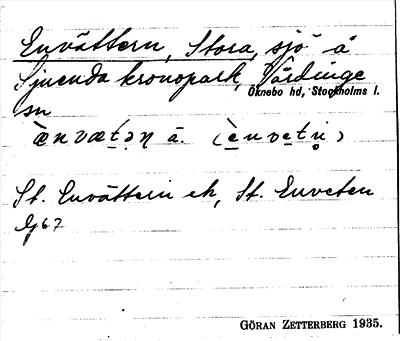 Envättern, Stora, sjö å
Sjuenda kronopark, Vårdinge
Öknebo hd, Stockholms l.
sn
St. Envättern ek, St. Enveten
GÖRAN ZETTERBERG 1935.